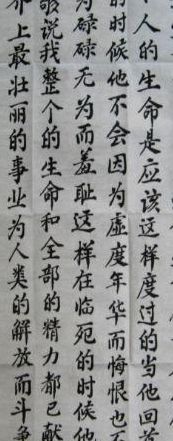 人的生命是应该这样度过的当他回首
的时候他不会因为虚度年华而悔恨也不
为碌碌无为而羞耻这样在临死的时候他
敢说我整个的生命和全部的精力都已献
界上最壮丽的事业为人类的解放而斗争